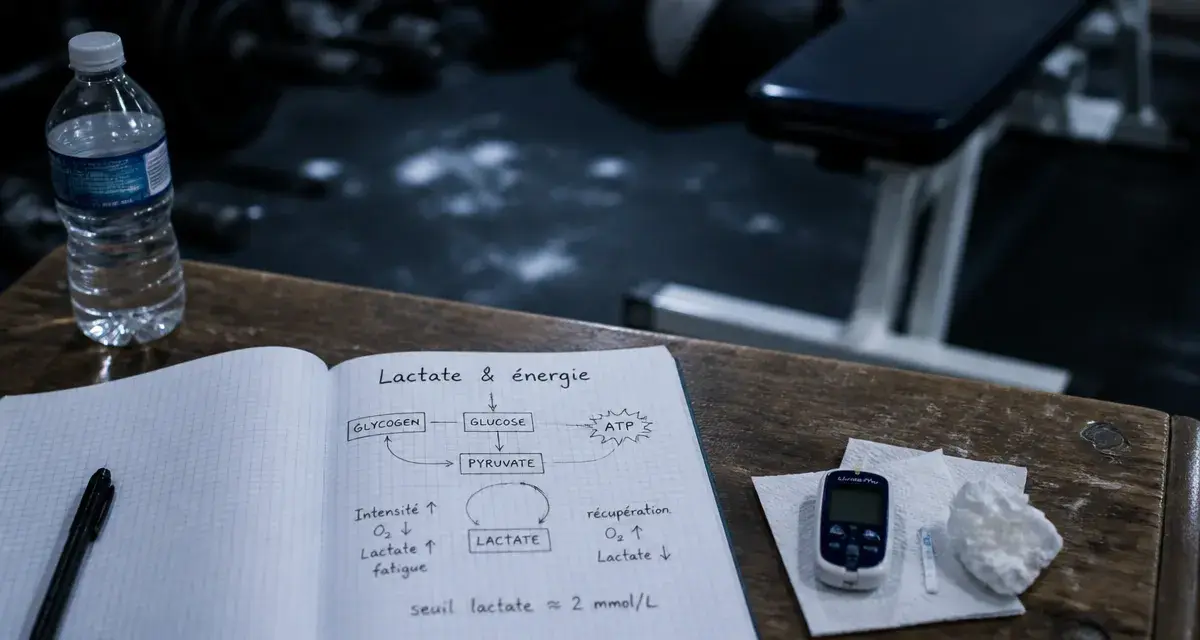 Lactate & énergie
GLYCOGEN
GLUCOSE
ATP
PYRUVATE
LACTATE
Intensité ↑
O₂ ↓
Lactate ↑
fatigue
récupération
O₂ ↑
Lactate ↓
seuil lactate ≈ 2 mmol/L